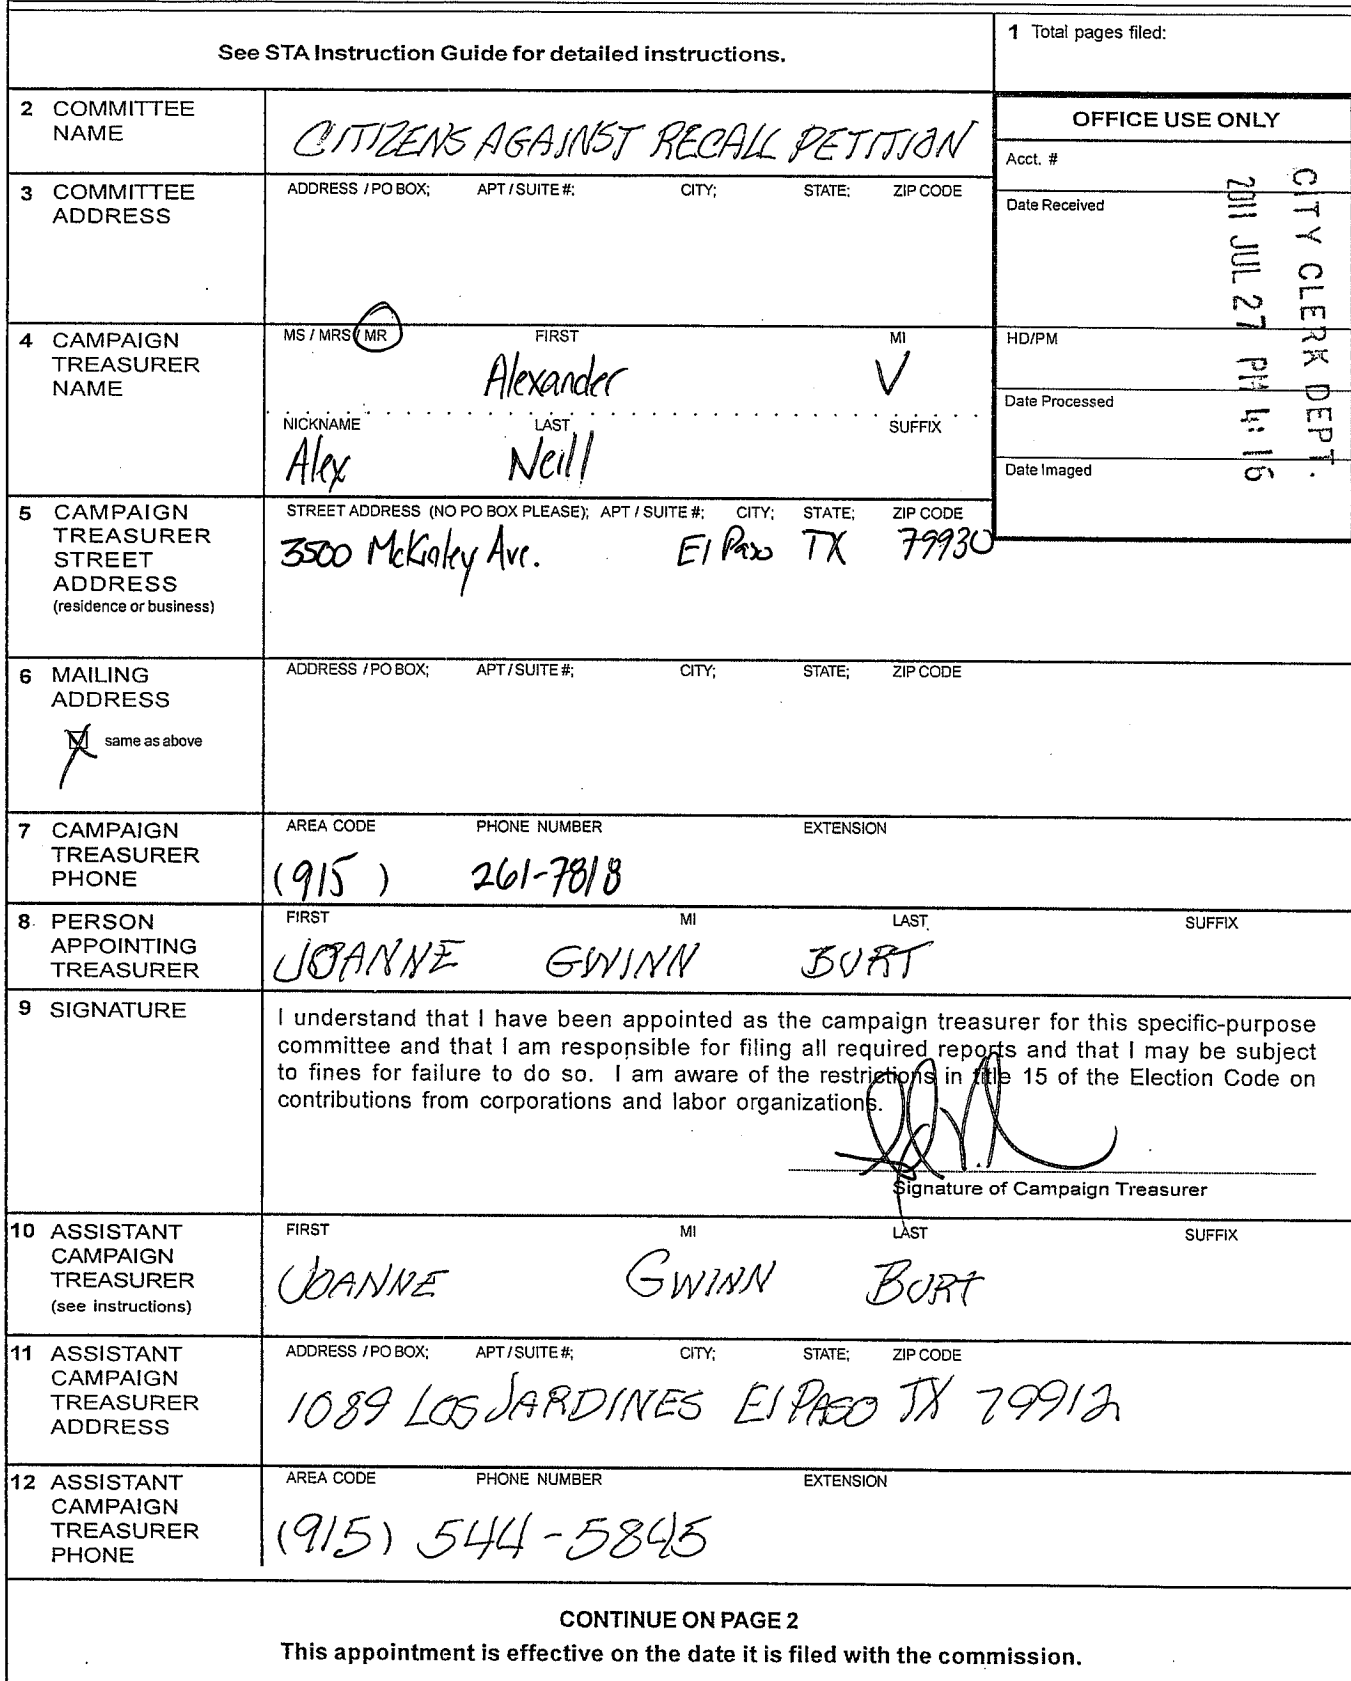 See STA Instruction Guide for detailed instructions.
1 Total pages filed:
2 COMMITTEE NAME
CITIZENS AGAINST RECALL PETITION
OFFICE USE ONLY
Acct. #
Date Received
HD/PM
Date Processed
Date Imaged
CITY CLERK DEPT.
2011 JUL 27 PM 4:16
3 COMMITTEE ADDRESS
ADDRESS / PO BOX; APT / SUITE #; CITY; STATE; ZIP CODE
4 CAMPAIGN TREASURER NAME
MS / MRS / MR FIRST MI
Alexander V
NICKNAME LAST SUFFIX
Alex Neill
5 CAMPAIGN TREASURER STREET ADDRESS
(residence or business)
STREET ADDRESS (NO PO BOX PLEASE); APT / SUITE #; CITY; STATE; ZIP CODE
3500 McKinley Ave. El Paso TX 79930
6 MAILING ADDRESS
same as above
ADDRESS / PO BOX; APT / SUITE #; CITY; STATE; ZIP CODE
7 CAMPAIGN TREASURER PHONE
AREA CODE PHONE NUMBER EXTENSION
(915) 261-7818
8 PERSON APPOINTING TREASURER
FIRST MI LAST SUFFIX
JOANNE GWINN BURT
9 SIGNATURE
I understand that I have been appointed as the campaign treasurer for this specific-purpose
committee and that I am responsible for filing all required reports and that I may be subject
to fines for failure to do so. I am aware of the restrictions in title 15 of the Election Code on
contributions from corporations and labor organizations.
Signature of Campaign Treasurer
10 ASSISTANT CAMPAIGN TREASURER
(see instructions)
FIRST MI LAST SUFFIX
JOANNE GWINN BURT
11 ASSISTANT CAMPAIGN TREASURER ADDRESS
ADDRESS / PO BOX; APT / SUITE #; CITY; STATE; ZIP CODE
1089 LOS JARDINES El PASO TX 79912
12 ASSISTANT CAMPAIGN TREASURER PHONE
AREA CODE PHONE NUMBER EXTENSION
(915) 544-5845
CONTINUE ON PAGE 2
This appointment is effective on the date it is filed with the commission.